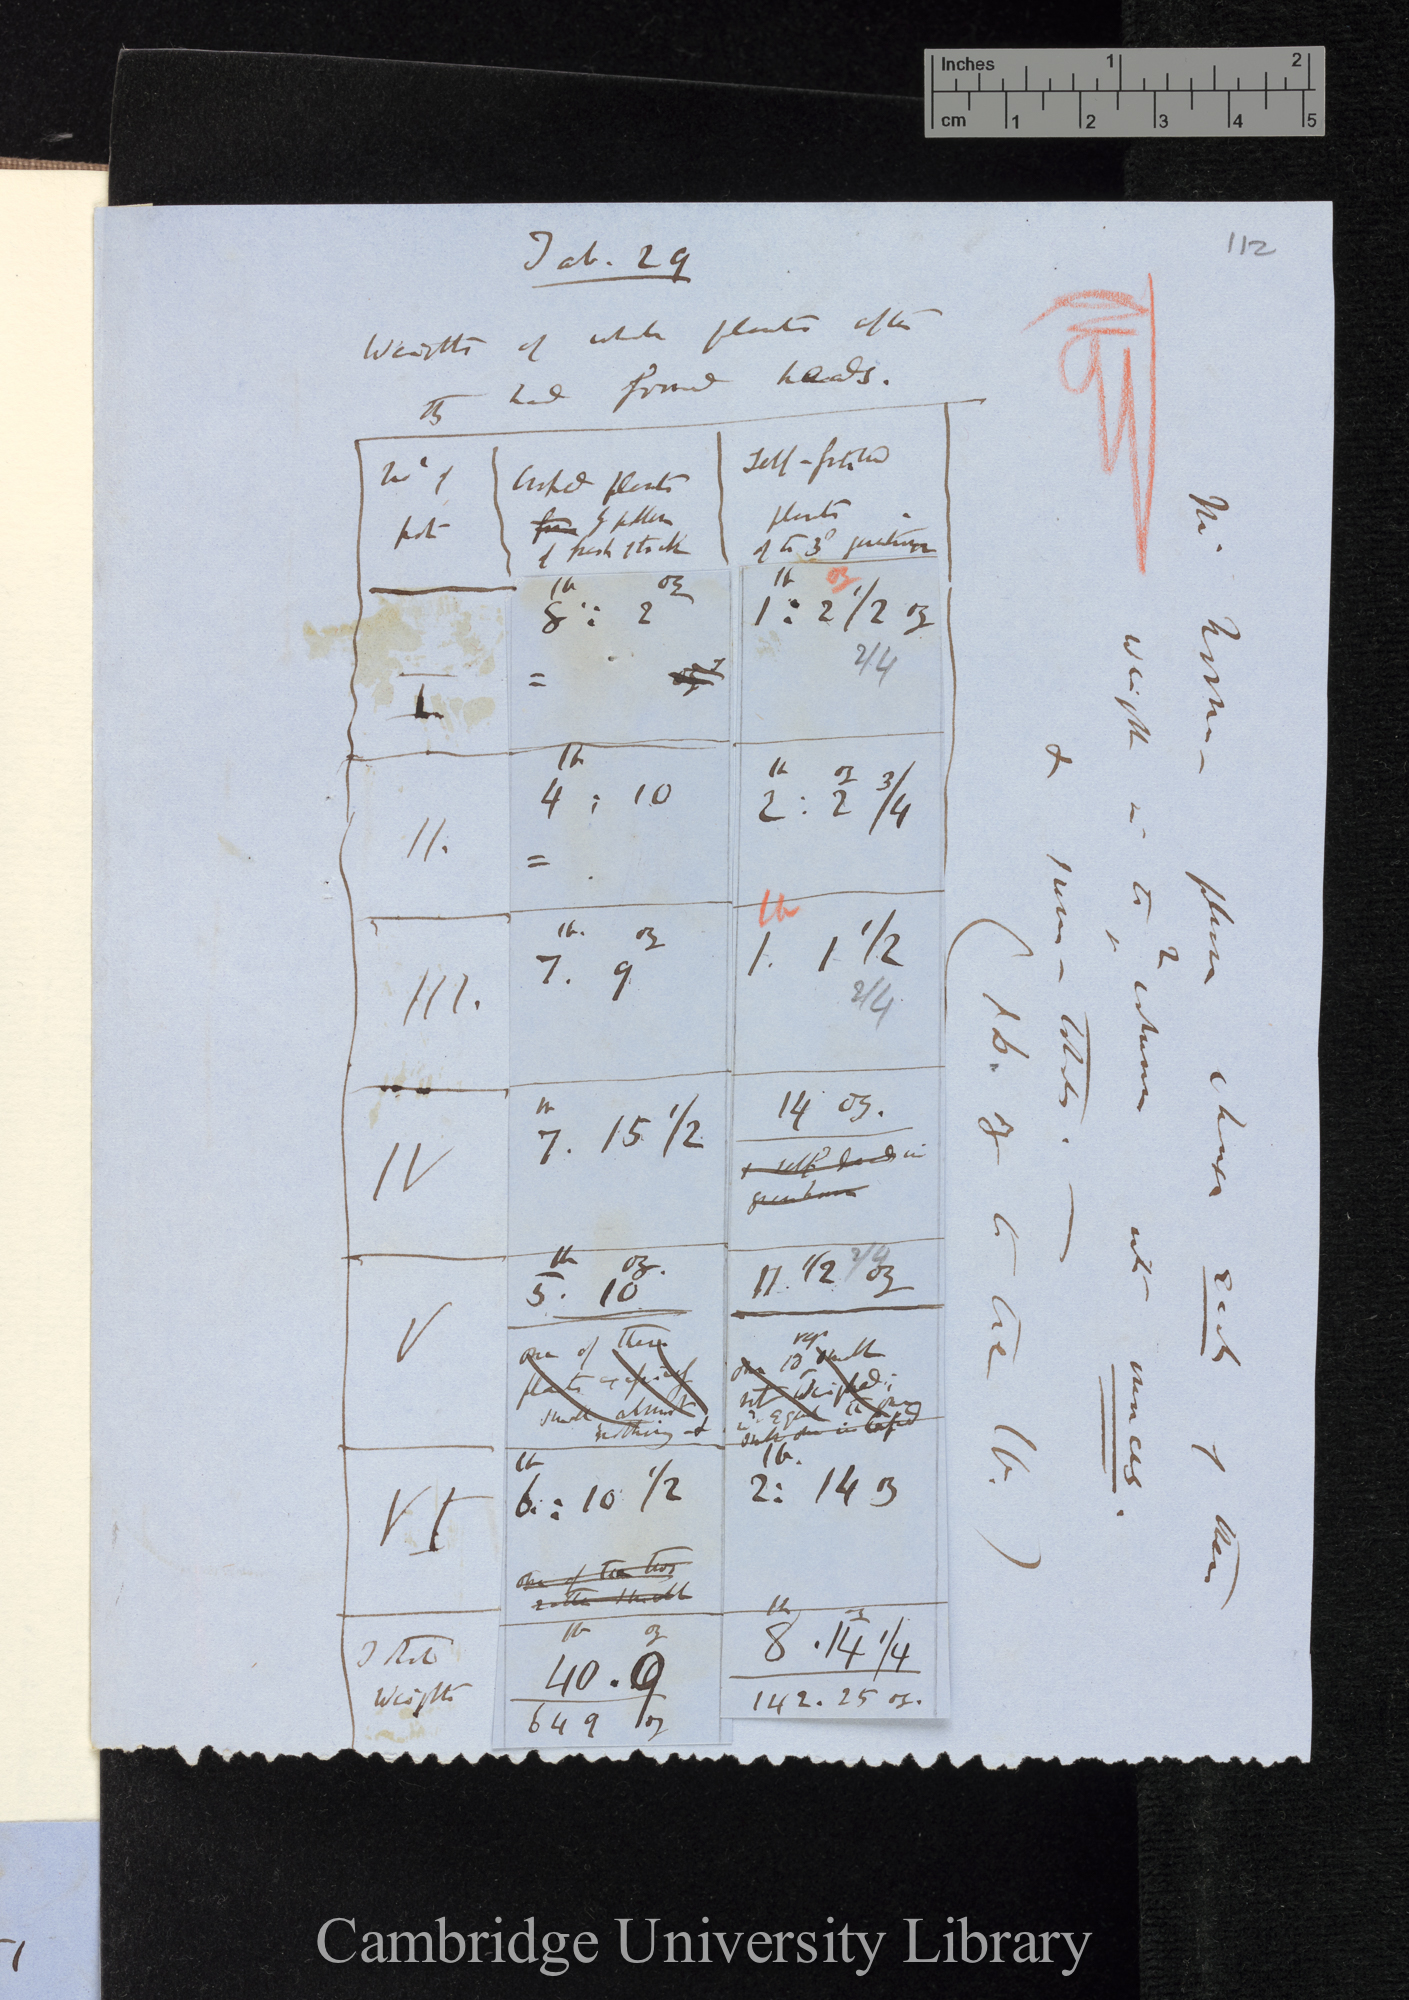 Inches 1 2
cm 1 2 3 4 5
112
Tab. 29
Weights of whole plants after
they had formed heads.
No of
pot
Crossed plants
from by pollen
of fresh stock
Self-fertilised
plants
of the 3d generation
lb oz
8 : 2
=
lb oz
1 : 2 1/2 oz
2/4
I
lb
4 : 10
=
lb oz
2 : 2 3/4
II.
lb. oz
7. 9
lb
1. 1 1/2
2/4
III.
lb
7. 15 1/2
14 oz.
+ self'd dead in
greenhouse
IV
lb oz.
5. 10
11. 1/2 oz
2/4
V
one of these
plants excessively
small almost
nothing
very
one is small
not weighed
lb
6. : 10 1/2
lb.
2: 14 oz
VI
one of the two
rather small
Total
weights
lb oz
40. 9
649 oz
lb oz
8 . 14 1/4
142.25 oz.
Mr Horner please change each of these
weights in the 2 columns into ounces.
& sum-totals. —
(16. oz to the lb.)
Cambridge University Library